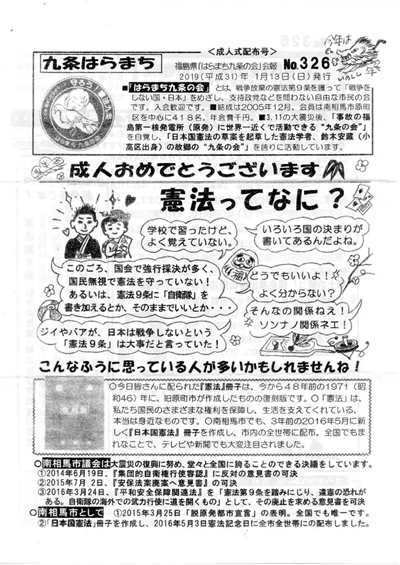 <成人式配布号>
今年は
いのしし年
九条はらまち
福島県「はらまち九条の会」会報 No.326
2019(平成31)年 1月13日(日)発行
■「はらまち九条の会」とは、戦争放棄の憲法第9条を護って「戦争を
しない国・日本」をめざし、支持政党などを問わない自由な市民の会
です。入会歓迎です。■結成は2005年12月。会員は南相馬市原町
区を中心に418名、年会費千円。■3.11の大震災後、「事故の福
島第一核発電所(原発)に世界一近くで活動できる"九条の会"」
を自覚し、「日本国憲法の草案を起草した憲法学者、鈴木安蔵(小
高区出身)の故郷の"九条の会"」を誇りに活動しています。
成人おめでとうございます
憲法ってなに?
学校で習ったけど、
よく覚えていない。
いろいろ国の決まりが
書いてあるんだよね。
このごろ、国会で強行採決が多く、
国民無視で憲法を守っていない!
あるいは、憲法9条に「自衛隊」を
書き加えるとか、そのままでいいとか・・・
どうでもいいよ!
よく分からない?
そんなの関係ねえ!
ソンナノ関係ネエ!
ジイやバアが、日本は戦争しないという
「憲法9条」は大事だと言っていた!
こんなふうに思っている人が多いかもしれませんね!
○今日皆さんに配られた『憲法』冊子は、今から48年前の1971(昭
和46)年に、旧原町市が作成したものの復刻版です。○「憲法」は、
私たち国民のさまざまな権利を保障し、生活を支えてくれている、
本当は身近なものです。○南相馬市でも、3年前の2016年5月に新
しく『日本国憲法』冊子を作成し、市内の全世帯に配布。全国でもま
れなことで、テレビや新聞でも大変注目されました。
○南相馬市議会は大震災の復興に努め、堂々と全国に誇ることのできる決議をしています。
①2014年6月19日、『集団的自衛権行使容認』に反対の意見書の可決
②2015年7月 2日、『安保法案廃案へ意見書』の可決
③2016年3月24日、『平和安全保障関連法』を「憲法第9条を踏みにじり、違憲の恐れが
ある。自衛隊の海外での武力行使に道を開くもの」として、その廃止を求める意見書を可決
○南相馬市として ①2015年3月25日「脱原発都市宣言」の表明。全国でも唯一です。
②「日本国憲法」冊子を作成し、2016年5月3日憲法記念日に全市全世帯に配布しました。